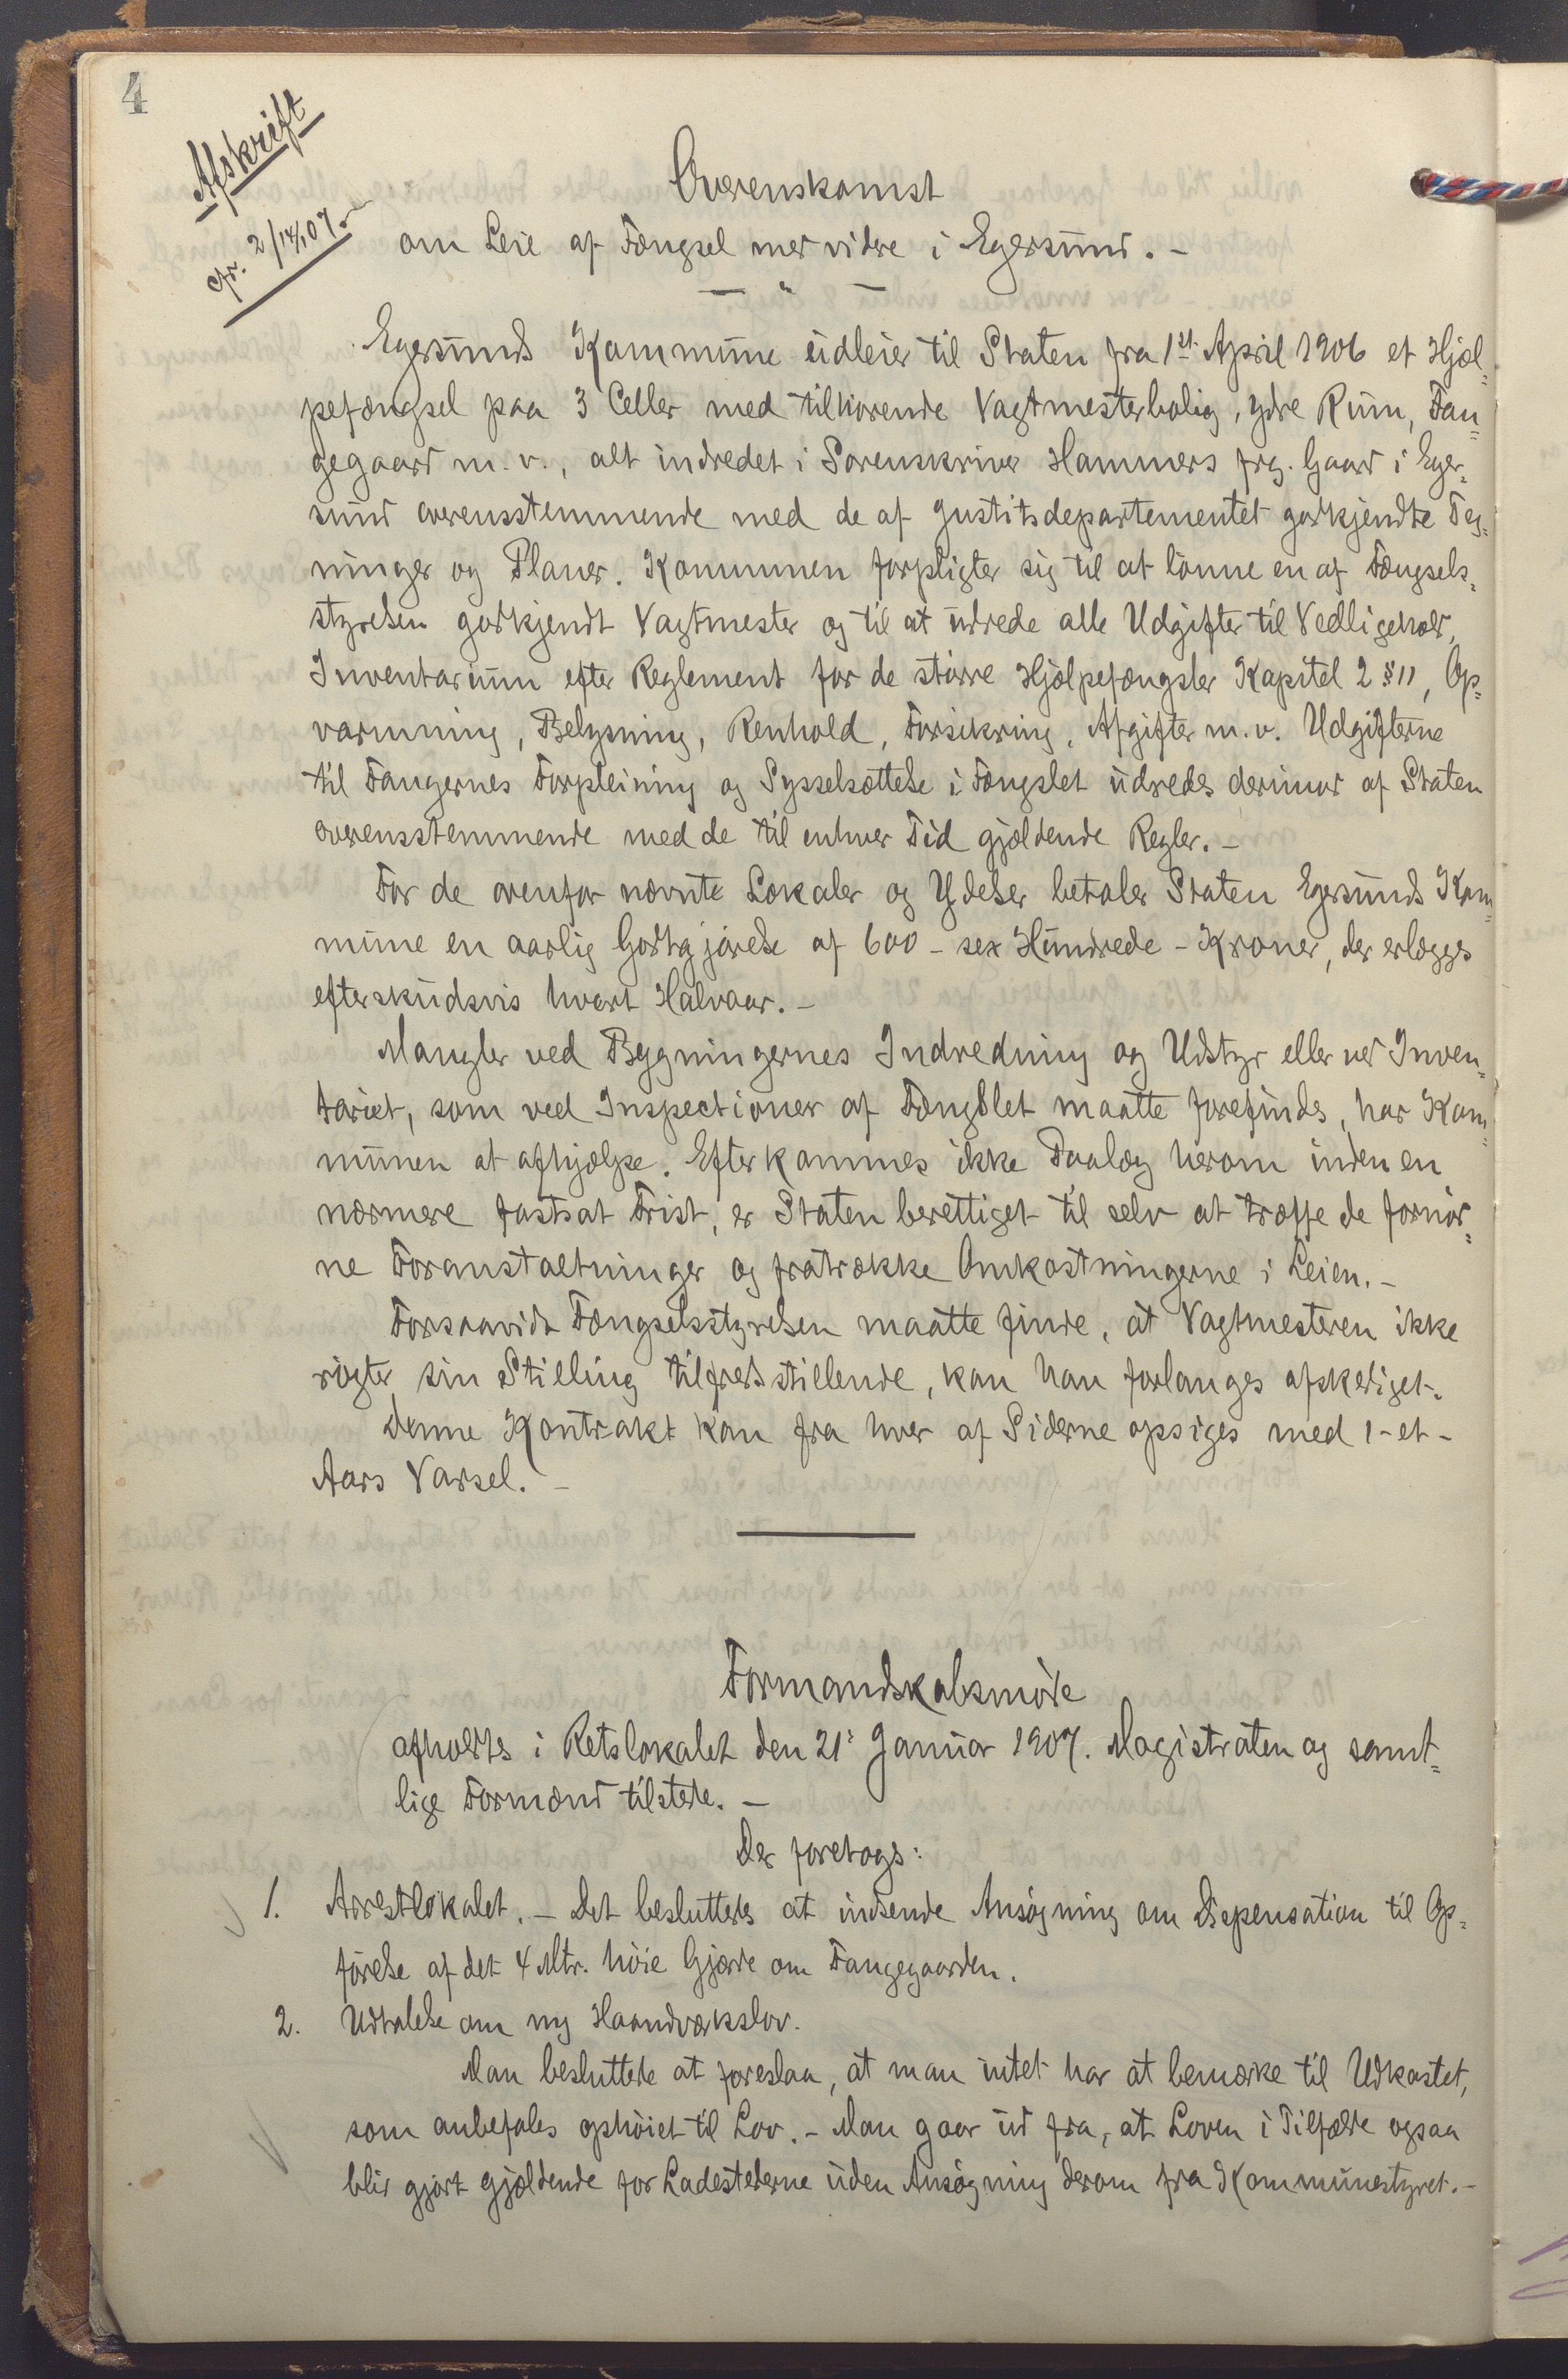 4
Afskrift
cfr. 2/14, 07.-
Overenskomst
om Leie af Fængsel med videre i Egersund. -
— " —
Egersunds Kommune udleier til Staten fra 1ste April 1906 et Hjæl-
pefængsel paa 3 Celler med tilhørende Vagtmesterbolig, ydre Rum, Fan-
gegaard m.v., alt indredet i Sorenskriver Hammers frg. Gaard i Eger-
sund overensstemmende med de af Justitsdepartementet godkjendte Teg-
ninger og Planer. Kommunen forpligter sig til at lønne en af Fængsels-
styrelsen godkjendt Vagtmester og til at udrede alle Udgifter til Vedligehold,
Inventarium efter Reglement for de større Hjælpefængsler Kapitel 2 § 11, Op-
varmning, Belysning, Renhold, Forsikring, Afgifter m.v. Udgifterne
til Fangernes Forpleining og Sysselsættelse i Fængslet udredes derimod af Staten
overensstemmende med de til enhver Tid gjældende Regler. -
For de ovenfor nævnte Lokaler og Ydelser betaler Staten Egersunds Kom-
mune en aarlig Godtgjørelse af 600 - sex Hundrede - Kroner, der erlægges
efterskudsvis hvert Halvaar. -
Mangler ved Bygningernes Indredning og Udstyr eller ved Inven-
tariet, som ved Inspectioner af Fængslet maatte forefindes, har Kom-
munen at afhjælpe. Efterkommes ikke Paalæg herom inden en
nærmere fastsat Frist, er Staten berettiget til selv at træffe de fornød-
ne Foranstaltninger og fratrække Omkostningerne i Leien. -
Forsaavidt Fængselsstyrelsen maatte finde, at Vagtmesteren ikke
røgter sin Stilling tilfredsstillende, kan han forlanges afskediget.
Denne Kontrakt kan fra hver af Siderne opsiges med 1 - et -
Aars Varsel. -
Formandskabsmøde
afholdtes i Retslokalet den 21' Januar 1907. Magistraten og samt-
lige Formænd tilstede. -
Der foretoges:
1. Arrestlokalet. - Det besluttedes at indsende Ansøgning om Dispensation til Op-
førelse af det 4 Mtr. høie Gjærde om Fangegaarden.
2. Udtalelse om ny Haandværkslov.
Man besluttede at foreslaa, at man intet har at bemærke til Udkastet,
som anbefales ophøiet til Lov. - Man gaar ud fra, at Loven i Tilfælde ogsaa
blir gjort gjældende for Ladestederne uden Ansøgning derom fra Kommunestyret. -